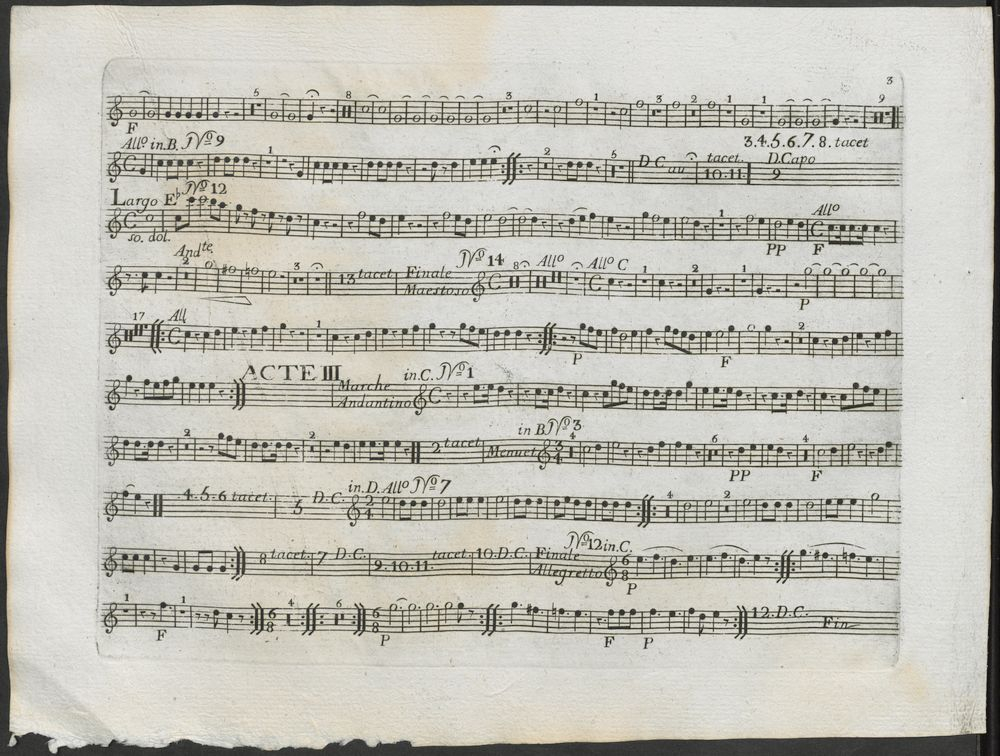 3
5 8 3 1 3 2 1 1 9
F
All⁰ in B. Nº 9 3.4.5.6.7.8. tacet
1 2 5 D.C. au tacet 10.11. D.Capo 9
Largo E♭ Nº 12 All⁰
so. dol. 1 PP F
And.te Nº 14
2 3 13 tacet Finale Maestoso C 8 All⁰ All⁰ C 1 1 2 1
P
17 All
C 1 2
P F
ACTE III in C. Nº 1
Marche Andantino C
in B. Nº 3
2 2 2 tacet Menuet 3/4 4 6 4
PP F
in D. All⁰ Nº 7
4.5.6 tacet 5 D.C. 2/4 4 2
Nº 12 in C.
8 tacet 7 D.C. 9.10.11. tacet 10.D.C. Finale Allegretto 6/8
P
1 1 6/8 4 6 6/8 12.D.C. Fin
F P F P